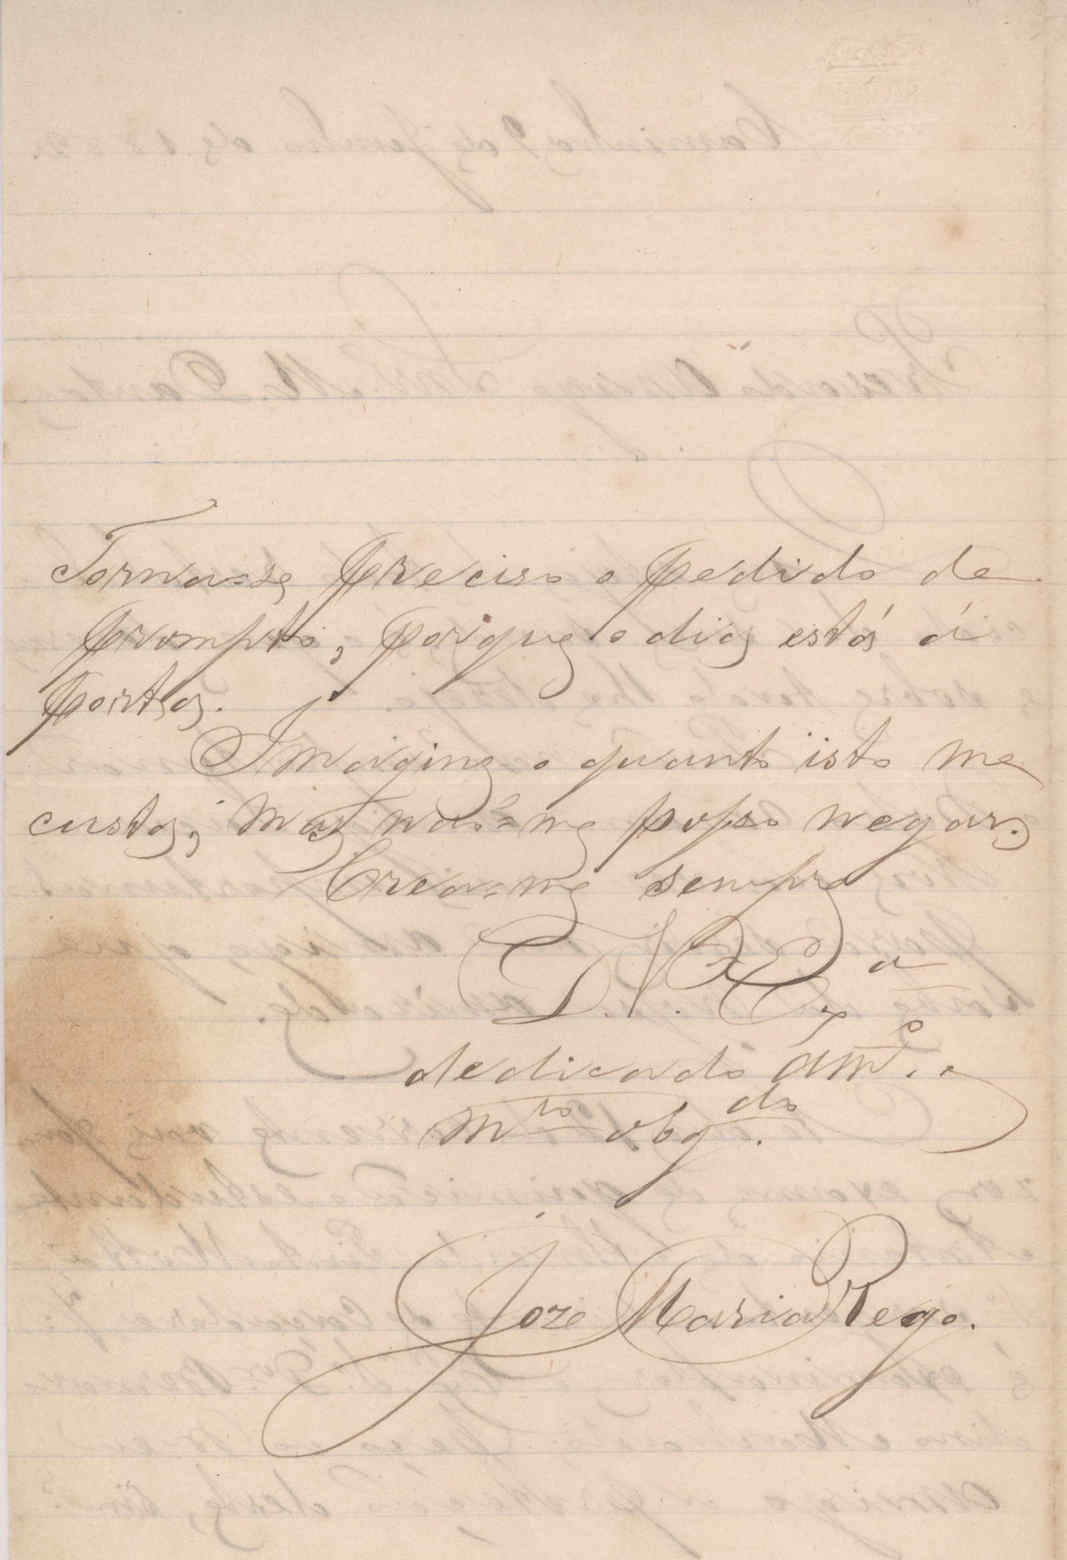 Torna-se preciso o pedido de
prompto, porque o dia está á
porta.
Imagine o quanto isto me
custa; mas não-me posso negar.
Crea-me sempre
D. V. Ex.ª
dedicado am.º e
m.to obg.do
Joze Maria Rego.